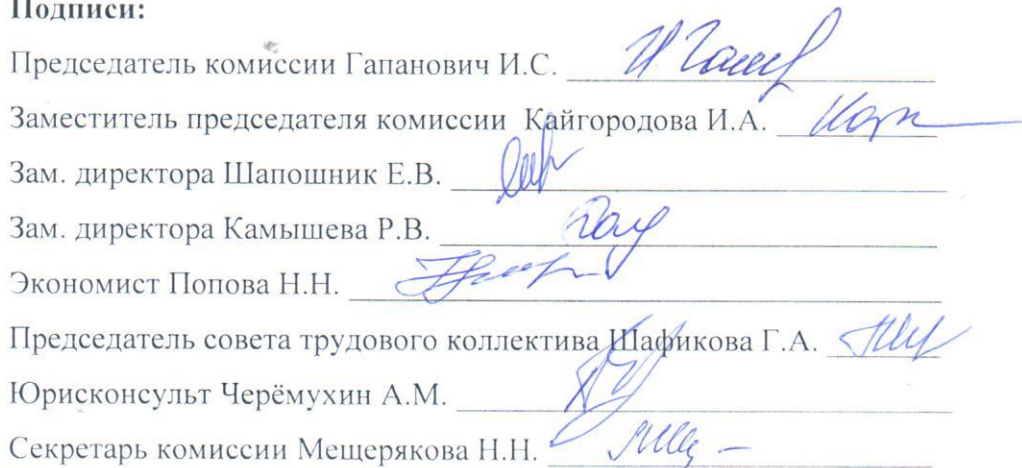 Подписи:
Председатель комиссии Гапанович И.С.
Заместитель председателя комиссии Кайгородова И.А.
Зам. директора Шапошник Е.В.
Зам. директора Камышева Р.В.
Экономист Попова Н.Н.
Председатель совета трудового коллектива Шафикова Г.А.
Юрисконсульт Черёмухин А.М.
Секретарь комиссии Мещерякова Н.Н.